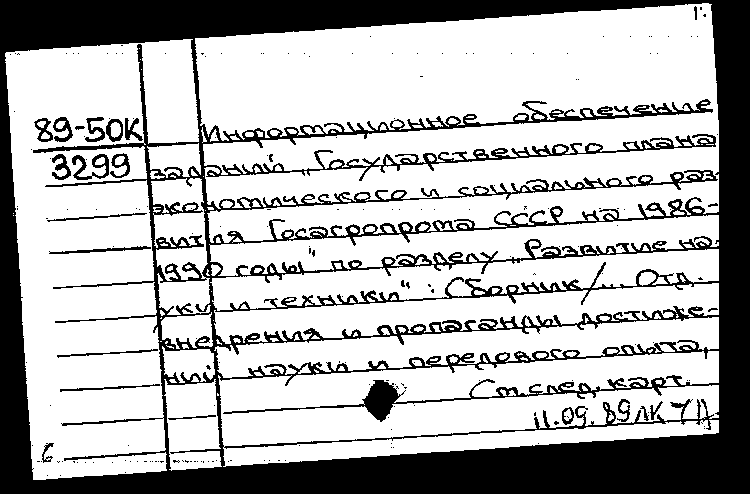 89-50К
3299
Информационное обеспечение
заданий „Государственного плана
экономического и социального раз-
вития Госагропрома СССР на 1986-
1990 годы" по разделу „Развитие на-
уки и техники" : Сборник/... Отд.
внедрения и пропаганды достиже-
ний науки и передового опыта,
См.след.карт.
11.09.89 ЛК
С